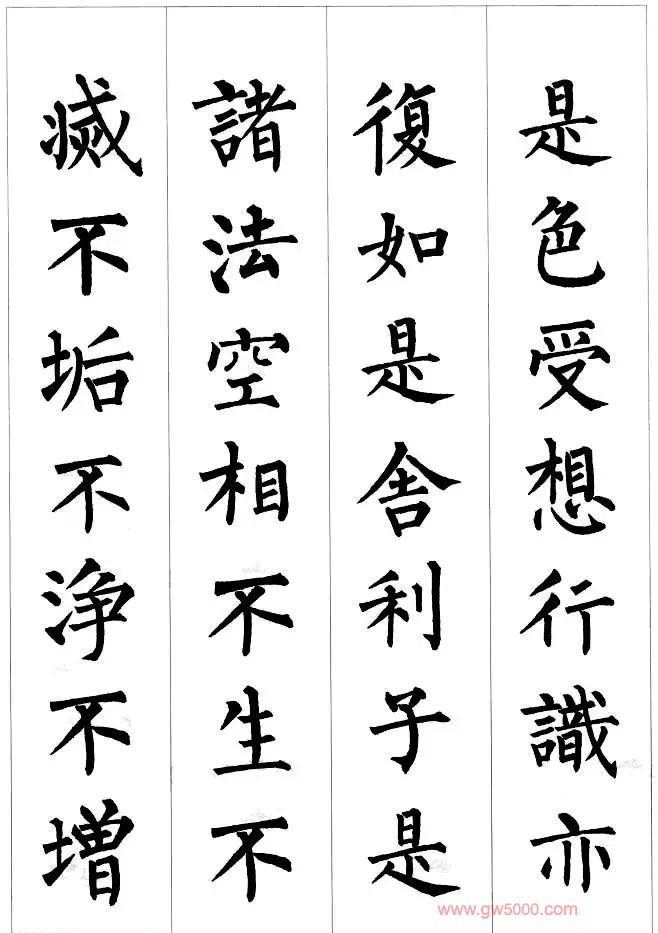 是色受想行識亦
復如是舍利子是
諸法空相不生不
滅不垢不浄不増
www.gw5000.com